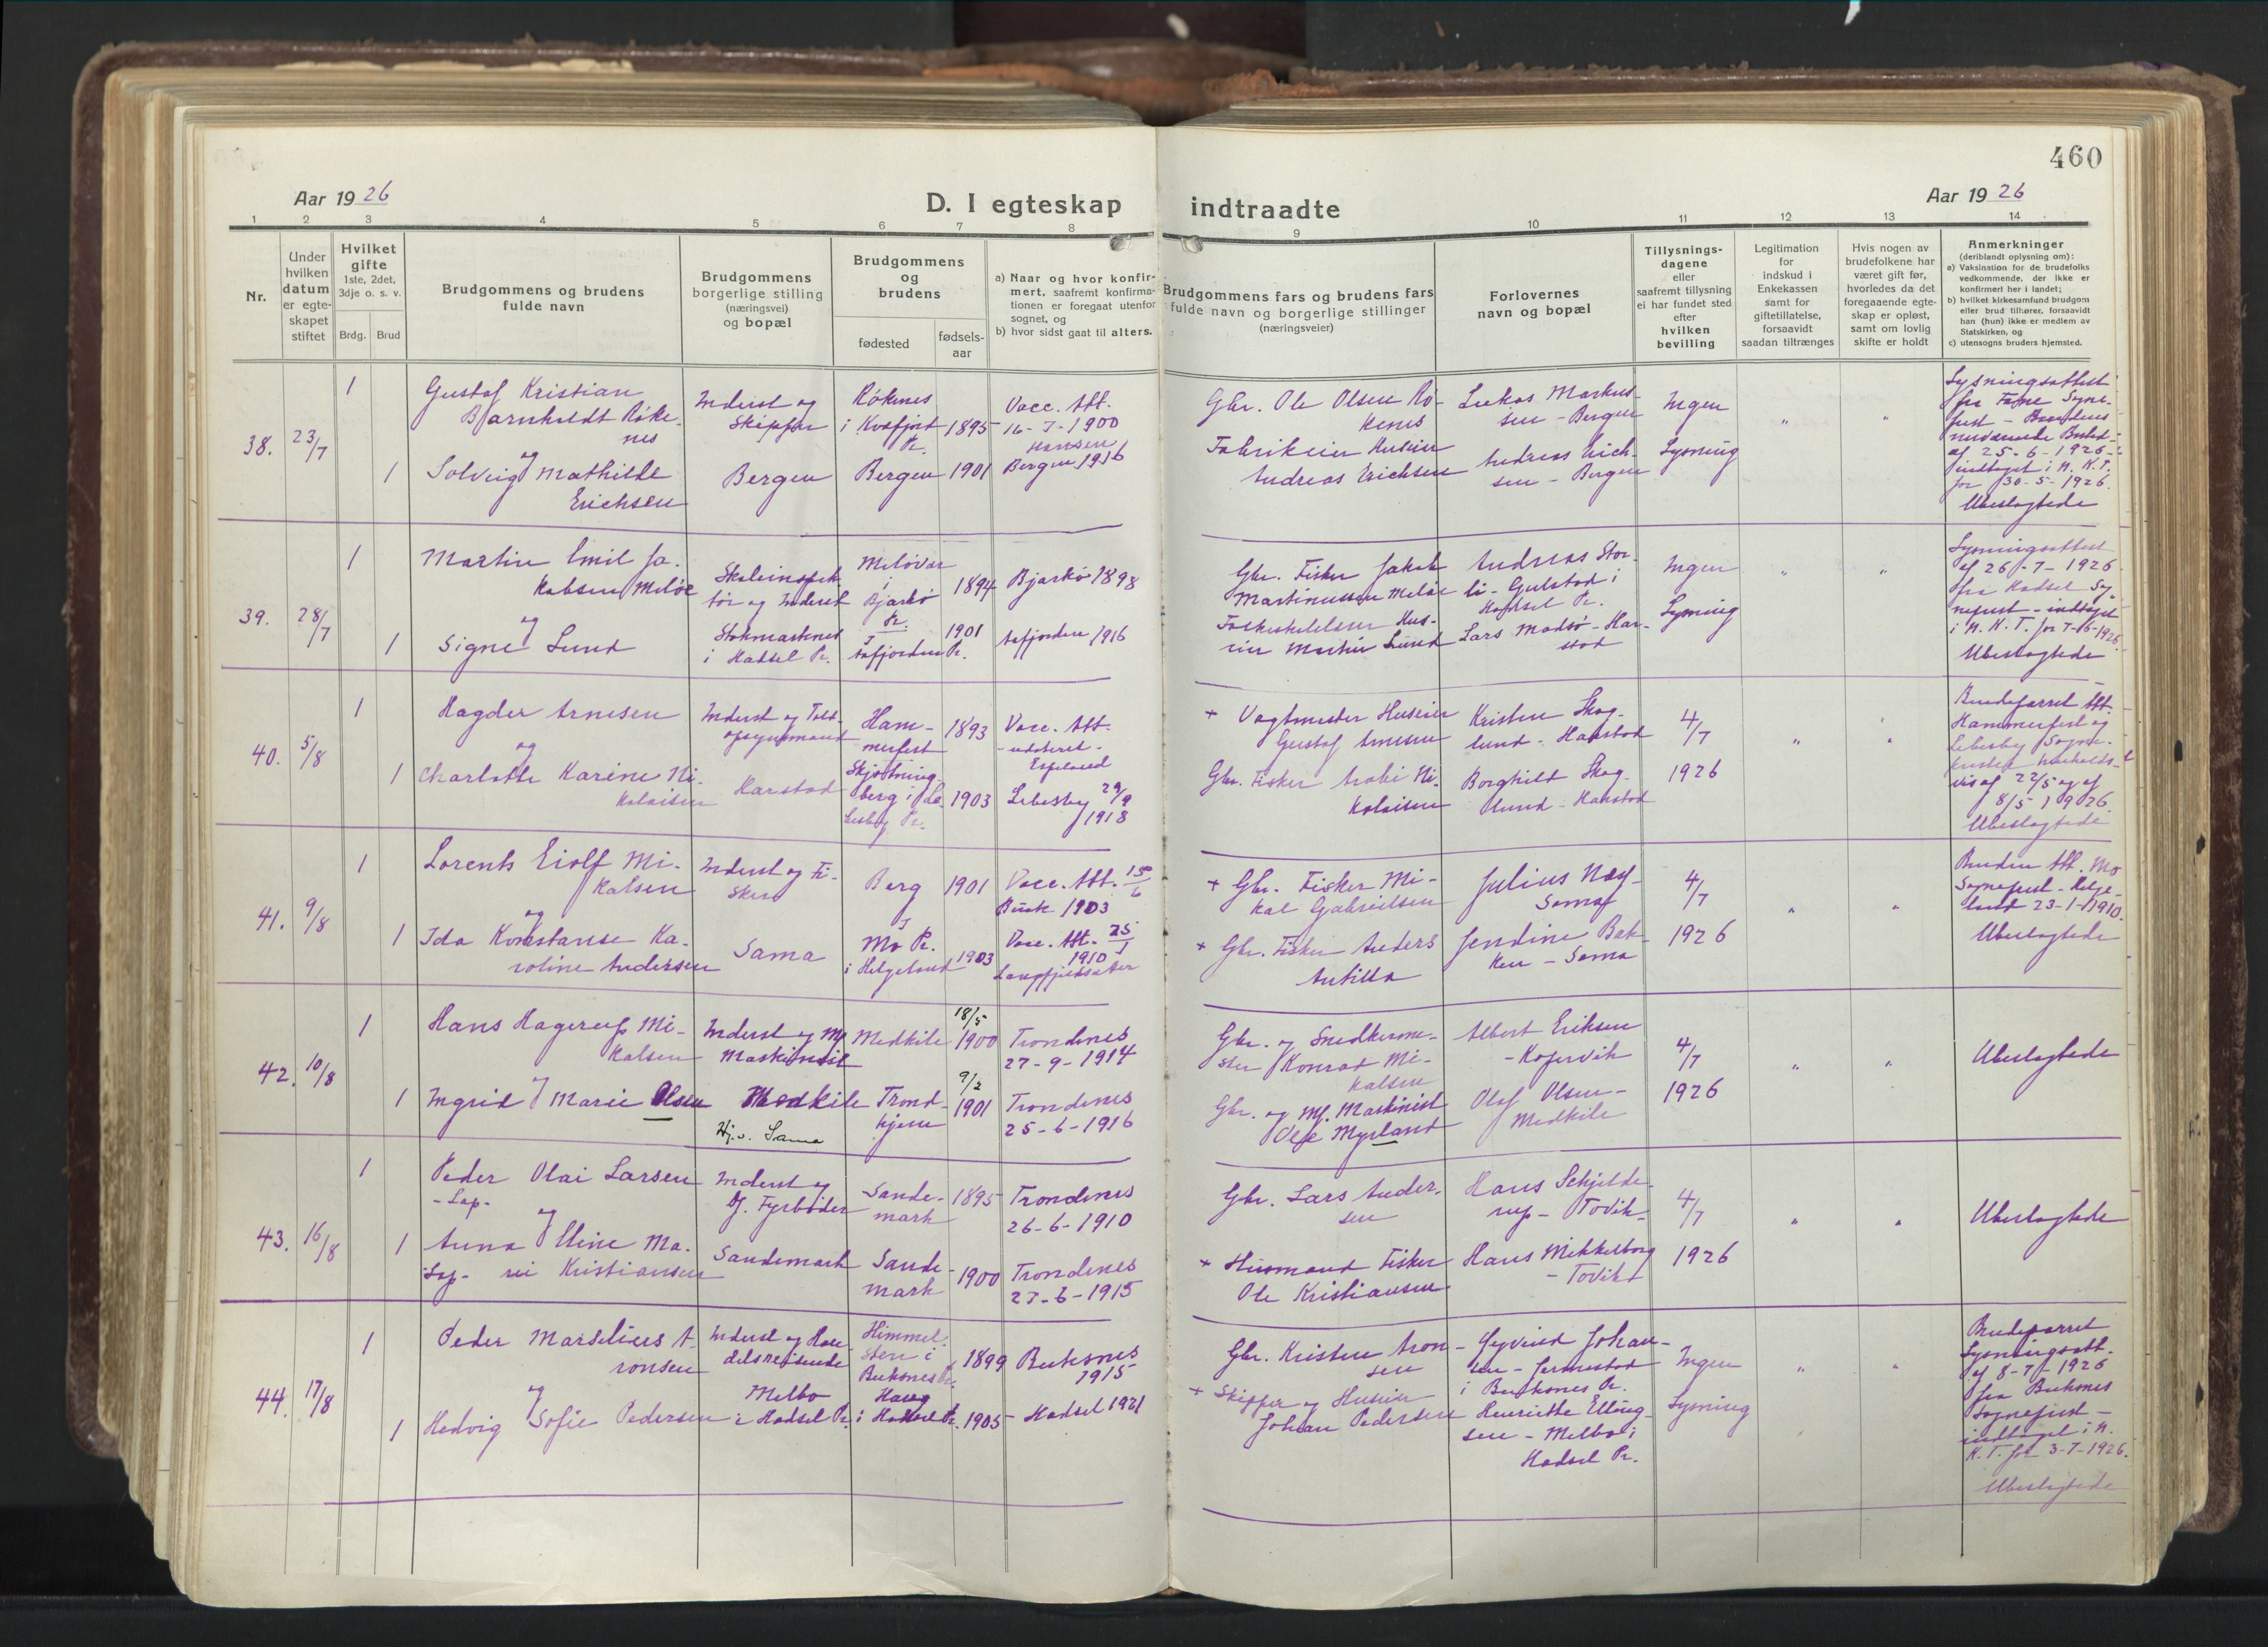 460
Aar 1926
D. I egteskap indtraadte
Aar 1926
1 2 3 4 5 6 7 8 9 10 11 12 13 14
Nr.
Under
hvilken
datum
er egte-
skapet
stiftet
Hvilket
gifte
1ste, 2det,
3dje o. s. v.
Brdg. Brud
Brudgommens og brudens
fulde navn
Brudgommens
borgerlige stilling
(næringsvei)
og bopæl
Brudgommens
og
brudens
fødested
fødsels-
aar
a) Naar og hvor konfir-
mert, saafremt konfirma-
tionen er foregaat utenfor
sognet, og
b) hvor sidst gaat til alters.
Brudgommens fars og brudens fars
fulde navn og borgerlige stillinger
(næringsveier)
Forlovernes
navn og bopæl
Tillysnings-
dagene
eller
saafremt tillysning
ei har fundet sted
efter
hvilken
bevilling
Legitimation
for
indskud i
Enkekassen
samt for
giftetillatelse,
forsaavidt
saadan tiltrænges
Hvis nogen av
brudefolkene har
været gift før,
hvorledes da det
foregaaende egte-
skap er opløst,
samt om lovlig
skifte er holdt
Anmerkninger
(deriblandt oplysning om):
a) Vaksination for de brudefolks
vedkommende, der ikke er
konfirmert her i landet;
b) hvilket kirkesamfund brudgom
eller brud tilhører, forsaavidt
han (hun) ikke er medlem av
Statskirken, og
c) utensogns bruders hjemsted.
38.
23/7
1
Gustaf Kristian
Bjarnholdt Røke-
nes
og
1
Solveig Mathilde
Erichsen
Inderst og
Skipper
Bergen
Røkenes
i Kvæfjord
Pr.
1895
Bergen 1901
Vacc. Att.
16-7-1900
Hansen
Bergen 1916
Gbr. Ole Olsen Rø-
kenes
Fabrikeier Huseier
Andreas Erichsen
Lukas Markus-
sen - Bergen
Andreas Erich-
sen - Bergen
Ingen
Lysning
" "
Lysningsattest
fra Fane Sogne-
prest - Brudens
nuværende Bosted -
af 25-6-1926 -
indtaget i N. K. T.
for 30-5-1926.
Ubeslægtede
39.
28/7
1
Martin Emil Ja-
kobsen Meløe
og
1
Signe Lund
Skoleinspek-
tør og Inderst
Stokmarknes
i Hadsel Pr.
Meløvær
i
Bjarkø
Pr.
1894
1901
Bjarkø 1898
1916
Gbr. Fisker Jakob
Martinussen Meløe
Hus-
eier Martin Lund
Andreas Stor-
li - Gulstad i
Hadsel Pr.
Lars Madsø - Har-
stad
Ingen
Lysning
" "
Lysningsattest
af 26-7-1926
fra Hadsel Sog-
neprest - indtaget
i N. K. T. for 7-6-1926.
Ubeslægtede
40.
5/8
1
Hagder Arnesen
og
1
Charlotte Karine Ni-
kolaisen
Inderst og Told-
opsynsmand
Harstad
Ham-
merfest
1893
Skjøtning-
berg i Le-
besby Pr.
1903
Vacc. Att.
- udateret -
Espeland
Lebesby 29/9
1918
+ Vagtmester Huseier
Gustaf Arnesen
Gbr. Fisker Arabi Ni-
kolaisen
Kristen Skog-
lund - Harstad
Borghild Skog-
lund - Harstad
4/7
1926
" "
Brudeparret Att.
Hammerfest og
Lebesby Sogne-
prester
vis af 22/5 og af
8/5 1926.
Ubeslægtede
41.
9/8
1
Lorents Eiolf Mi-
kalsen
og
1
Ida Konstanse Ka-
roline Andersen
Inderst og Fi-
sker
Sama
Berg 1901
Mo Pr.
i Helgeland
1903
Vacc. Att. 15/6
1903
Vacc. Att. 25/1
1910
+ Gbr. Fisker Mi-
kal Gabrielsen
+ Gbr. Fisker Anders
Antilla
Julius Næs -
Sama
Jendine Bak-
ken - Sama
4/7
1926
" "
Bruden Att. Mo
Sogneprest - Helge-
land 23-1-1910.
Ubeslægtede
42.
10/8
1
Hans Hagerup Mi-
kalsen
og
1
Ingrid Marie Olsen
Inderst og Mf
Maskinist
Medkile
Hj.v. Sama
Medkile
18/5
1900
Trond-
hjem
9/2
1901
Trondenes
27-9-1914
Trondenes
25-6-1916
Gbr. og Snedkerme-
ster Konrad Mi-
kalsen
Gbr. og Mf. Maskinist
Ole Myrland
Albert Eriksen
- Kopervik
Olaf Olsen -
Medkile
4/7
1926
" "
Ubeslægtede
43.
16/8
1
Peder Olai Larsen
- Lap -
og
1
Anna Eline Ma-
- Lap - rie Kristiansen
Inderst og
Df. Fyrbøder
Sandemark
Sande-
mark
1895
Sande-
mark
1900
Trondenes
26-6-1910
Trondenes
27-6-1915
Gbr. Lars Ander-
sen
+ Husmand Fisker
Ole Kristiansen
Hans Schjelde-
rup - Tovik
Hans Mikkelborg
- Tovik
4/7
1926
" "
Ubeslægtede
44.
17/8
1
Peder Marselius A-
ronsen
og
1
Hedvig Sofie Pedersen
Inderst og Han-
delsreisende
Melbo
i Hadsel Pr.
Himmel-
sten i
Buksnes Pr.
1899
Haug
i Hadsel Pr. 1905
Buksnes
1915
Hadsel 1921
Gbr. Kristen Aron-
sen
+ Skipper og Huseier
Johan Pedersen
Johan-
sen -
i Buksnes Pr.
Henriette Elling-
sen - Melbo i
Hadsel Pr.
Ingen
Lysning
" "
Brudeparret
Lysningsatt.
af 8-7-1926
fra Buksnes
Sogneprest -
indtaget i N.
K. T. for 3-7-1926.
Ubeslægtede